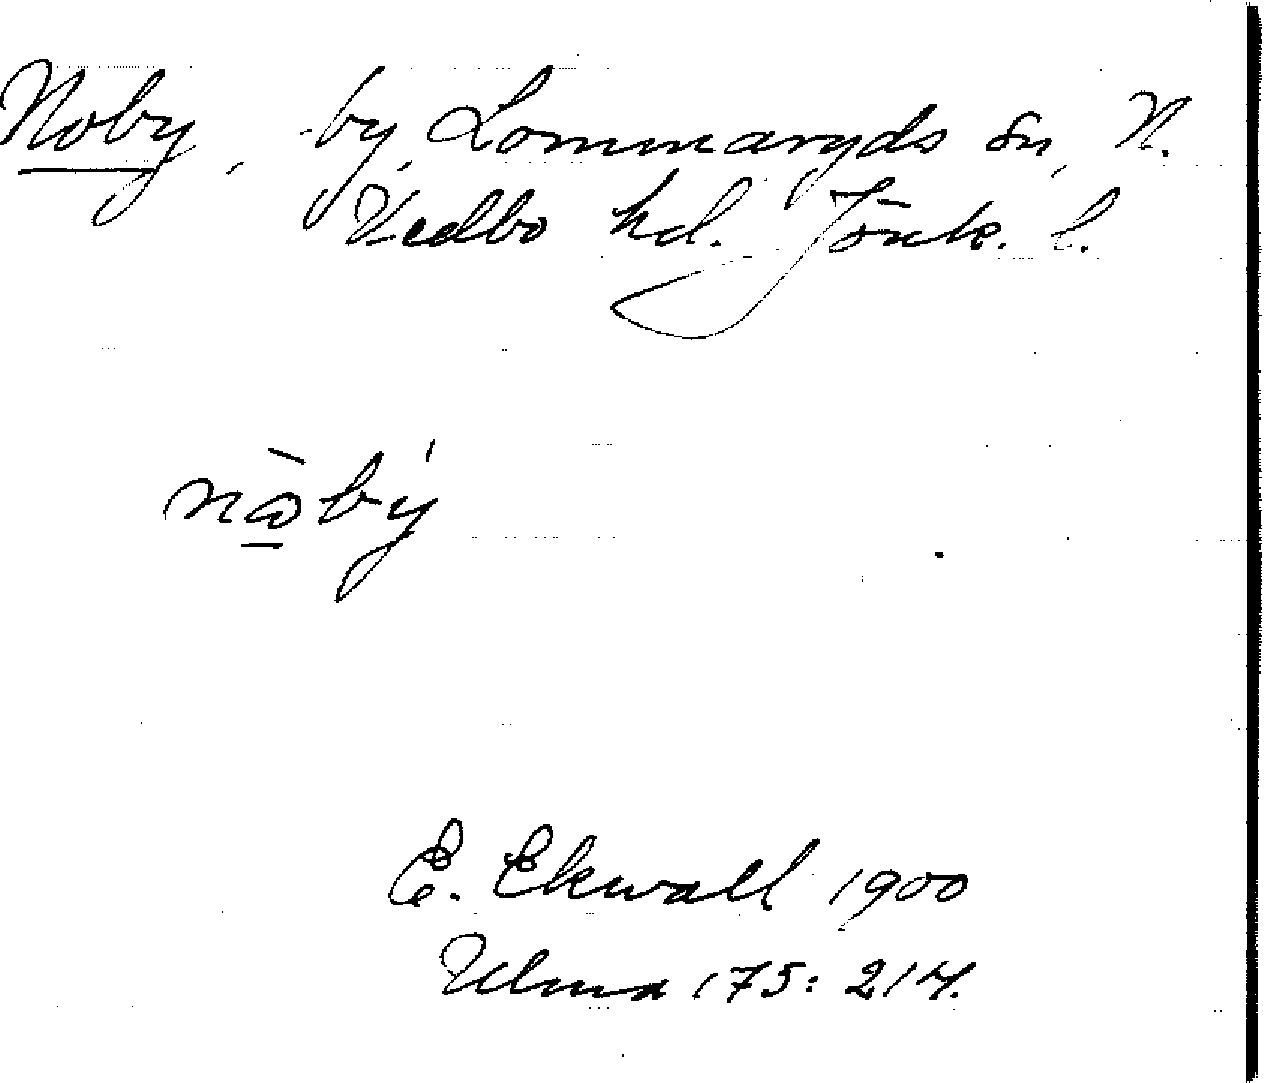 Noby, by, Lommaryds sn, N.
Vedbo hd. Jönk. l.
nὼbý
E. Ekwall 1900
Ulma 175: 214.